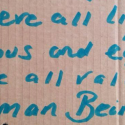 ere all li
ous and e
e all val
man Bei